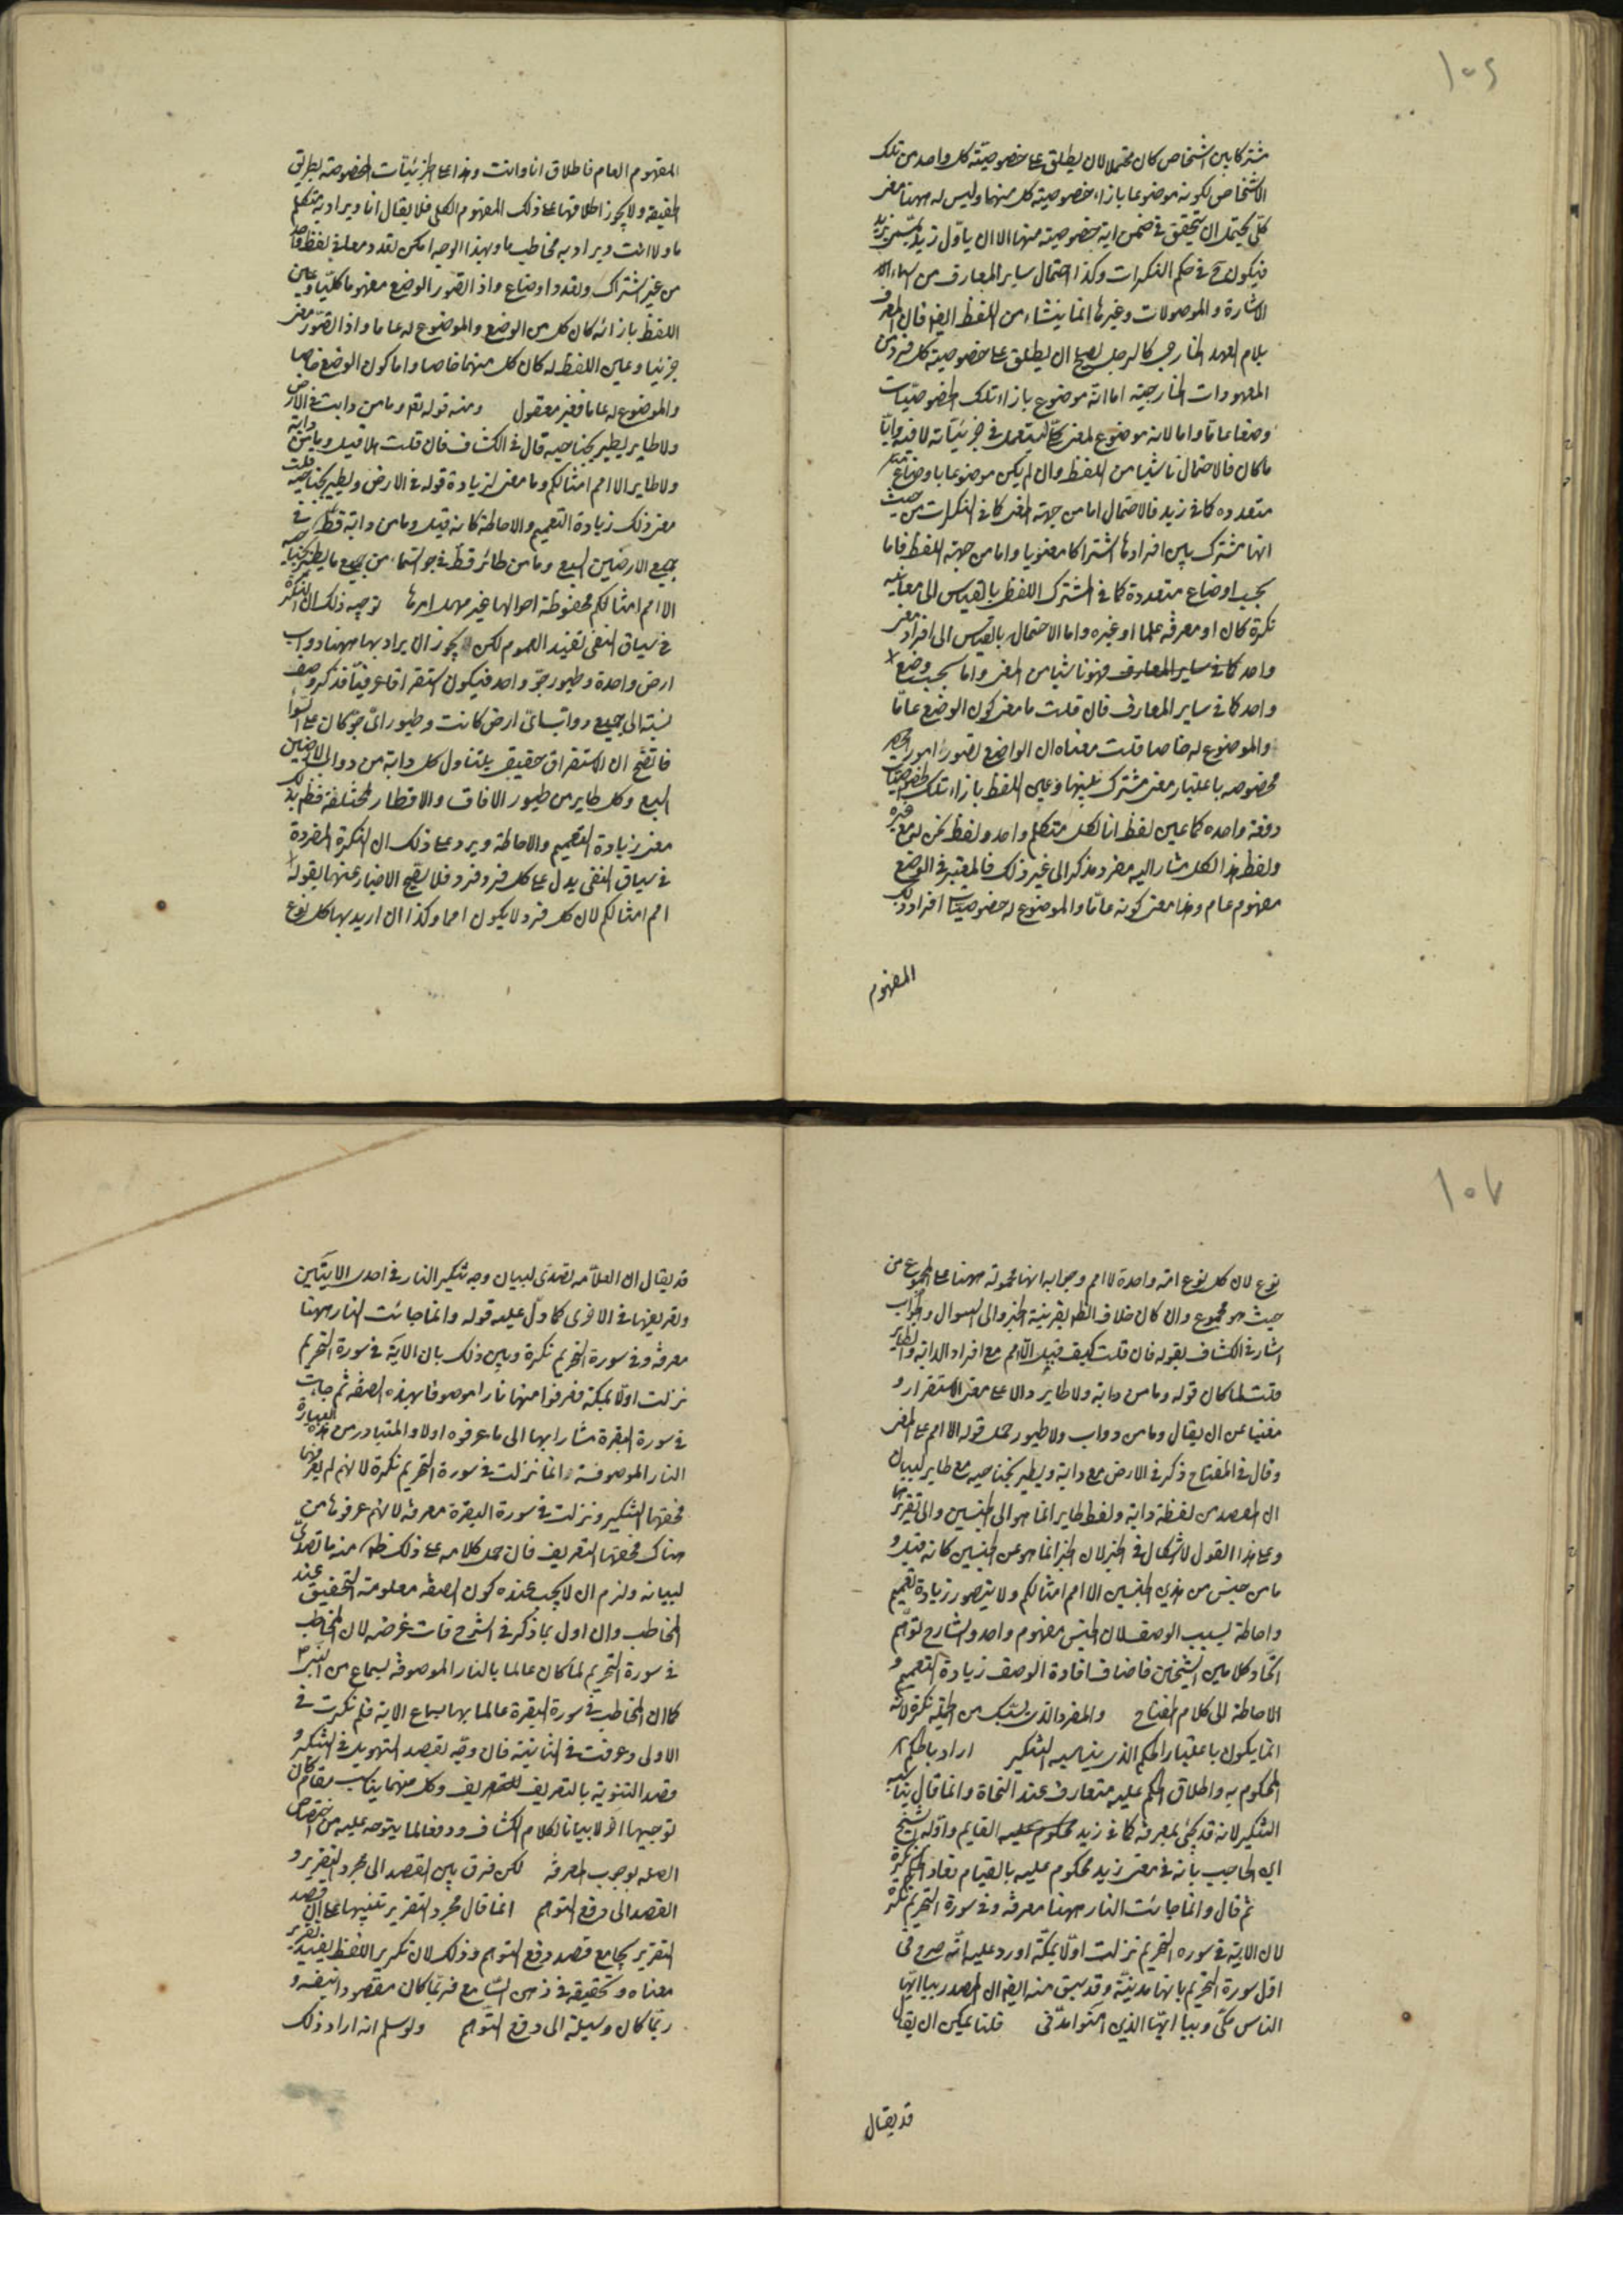 ١٠٦
مشتركا بين اشخاص كان محتملا لان يطلق على خصوصيته كل واحد من تلك
الاشخاص لكونه موضوعا بازاء خصوصية كل منهما وليس له ههنا معنى
كلى يحتمل ان يتحقق فى ضمن اية خصوصيته منها الا ان ياول زيد بمسمى بزيد
فيكون ح فى حكم النكرات وكذا احتمال ساير المعارف من اسماء
الاشارة والموصولات وغيرها انما ينشاء من اللفظ ايضا فان المعرف
بلام العهد الخارجى كالرجل يصلح ان يطلق على خصوصية كل فرد من
المعهودات الخارجية اما انه موضوع بازاء تلك الخصوصيات
وضعا عاما واما لانه موضوع لمعنى كلى ليستعمل فى جزئياته لا فيه وايا
ما كان فالاحتمال ناشيا من اللفظ وان لم يكن موضوعا باوضاع
متعدده كما فى زيد فالاحتمال اما من جهته المعنى كما فى النكرات من حيث
انها مشترك بين افرادها اشتراكا معنويا واما من جهته اللفظ فاما
بحسب اوضاع متعددة كما فى المشترك اللفظ بالقياس الى معانيه
نكرة كان او معرفه علما او غيره واما الاحتمال بالقياس الى افراد معنى
واحد كما فى ساير المعارف فهو ناشيا من المعنى واما بحسب وضع
واحد كما فى ساير المعارف فان قلت ما معنى كون الوضع عاما
والموضوع له خاصا قلت معناه ان الواضع تصور امورا
مخصوصه باعتبار معنى مشترك بينها وعين اللفظ بازاء تلك الخصوصيات
دفعة واحده كما عين لفظ انا لكل متكلم واحد ولفظ نحن له مع غيره
ولفظ هذا لكل مشار اليه مفرد مذكر الى غير ذلك فالمعتبر فى الوضع
مفهوم عام وهذا معنى كونه عاما والموضوع له خصوصيات افراد ذلك
المفهوم
المفهوم العام فاطلاق انا وانت وهذا على الجزئيات المخصوصة بطريق
الحقيقة ولا يجوز اطلاقها على ذلك المفهوم الكلى فلا يقال انا ويراد به متكلم
ما ولا انت ويراد به مخاطب ما وبهذا الوجه امكن تعدد معان فى لفظ واحد
من غير اشتراك وتعدد اوضاع واذا تصور الواضع مفهوما كليا وعين
اللفظ بازائه كان كل من الوضع والموضوع له عاما واذا تصور معنى
جزئيا وعين اللفظ له كان كل منهما خاصا واما كون الوضع خاصا
والموضوع له عاما فغير معقول ومنه قوله تعم وما من دابة فى الارض
ولا طاير يطير بجناحيه قال فى الكشاف فان قلت هلا قيل وما من دابة
ولا طاير الا امم امثالكم وما معنى زيادة قوله فى الارض ويطير بجناحيه قلت
معنى ذلك زيادة التعميم والاحاطة كانه قيل وما من دابة قط فى
جميع الارضين السبع وما من طائر قط فى جو السماء من جميع ما يطير بجناحيه
الا امم امثالكم محفوظة احوالها غير مهمل امرها توجيه ذلك ان النكرة
فى سياق النفى تفيد العموم لكن يجوز ان يراد بها ههنا دواب
ارض واحدة وطيور جو واحد فيكون استغراقا عرفيا فذكر وصف
نسبته الى جميع دواب اى ارض كانت وطيور اى جو كان على السوا
فاتضح ان الاستغراق حقيقى يتناول كل دابة من دواب الارضين
السبع وكل طاير من طيور الافاق والاقطار المختلفة فظهر بذلك
معنى زيادة التعميم والاحاطة ويرد على ذلك ان النكرة المفردة
فى سياق النفى يدل على كل فرد فرد فلا يصح الاخبار عنها بقوله الا
امم امثالكم لان كل فرد لا يكون امما وكذا ان اريد بها كل نوع
١٠٧
نوع لان كل نوع امة واحدة لا امم وجوابه انها محموله ههنا على المجموع من
حيث هو مجموع وان كان خلاف الظ بقرينة الخبر والى السوال والجواب
اشار فى الكشاف بقوله فان قلت كيف قيل الا امم مع افراد الدابة والطاير
قلت لما كان قوله وما من دابة ولا طاير دالا على معنى الاستغراق و
مغنيا عن ان يقال وما من دواب ولا طيور حمل قوله الا امم على المعنى
وقال فى المفتاح ذكر فى الارض مع دابة ويطير بجناحيه مع طاير لبيان
ان القصد من لفظة دابة ولفظ طاير انما هو الى الجنسين والى تقريرهما
وعلى هذا القول لا اشكال فى الخبر لان الخبر انما هو عن الجنسين كانه قيل و
ما من جنس من هذين الجنسين الا امم امثالكم ولا يتصور زيادة تعميم
واحاطة بسبب الوصف لان الجنس مفهوم واحد والشارح توهم
اتحاد كلامين الشيخين فاضاف افادة الوصف زيادة التعميم و
الاحاطة الى كلام المفتاح والمفرد الذى يسبك من الجملة نكرة لانه
انما يكون باعتبار الحكم الذى يناسبه التنكير اراد بالحكم
المحكوم به واطلاق الحكم عليه متعارف عند النحاة وانما قال يناسبه
التنكير لانه قد يجئ بمعرفة كما فى زيد محكوم عليه القايم واوله الشيخ
ابن الحاجب بانه فى معنى زيد محكوم عليه بالقيام
ثم قال وانما جائت النار ههنا معرفه وفى سورة التحريم نكرة
لان الاية فى سوره التحريم نزلت اولا بمكة اورد عليه انه صرح فى
اول سورة التحريم بانها مدنية وقد سبق منه ايضا ان المصدر بيا ايها
الناس مكى وبيا ايها الذين آمنوا مدنى قلنا يمكن ان يقال
قد يقال
قد يقال ان العلامه تصدى لبيان وجه تنكير النار فى احدى الايتين
وتعريفها فى الاخرى كما دل عليه قوله وانما جائت النار ههنا
معرفه وفى سورة التحريم نكرة وبين ذلك بان الاية فى سورة التحريم
نزلت اولا بمكة فعرفوا منها نارا موصوفا بهذه الصفة ثم جائت
فى سورة البقرة مشارا بها الى ما عرفوه اولا والمتبادر من هذه العبارة
ان النار الموصوفة انما نزلت فى سورة التحريم نكرة لانهم لم يعرفوها
فحقها التنكير ونزلت فى سورة البقرة معرفه لانهم عرفوها من
هناك فحقها التعريف فان حمل كلامه على ذلك ظهر منه ما تصدى
لبيانه ولزم ان لا يجب عنده كون الصفة معلومة التحقيق عند
المخاطب وان اول بما ذكر فى الشرح فات غرضه لان المخاطب
فى سورة التحريم لما كان عالما بالنار الموصوفة بسماع من النبى
كما ان المخاطب فى سورة البقرة عالما بها بسماع الاية فلم نكرت فى
الاولى وعرفت فى الثانية فان وجه بقصد التهويل فى التنكير و
قصد التنويه بالتعريف وكل منهما يناسب مقام كان
توجيها اخر لا بيانا لكلام الكشاف ودفعا لما يتوجه عليه من اختصاص
الصله بوجوب المعرفة لكن فرق بين القصد الى مجرد التقرير و
القصد الى دفع التوهم انما قال مجرد التقرير تنبيها على ان قصد
التقرير يجامع قصد دفع التوهم وذلك لان تكرير اللفظ يفيد تقرير
معناه وتحقيقه فى ذهن السامع فربما كان مقصودا بنفسه و
ربما كان وسيلة الى دفع التوهم ولو سلم انه اراد ذلك